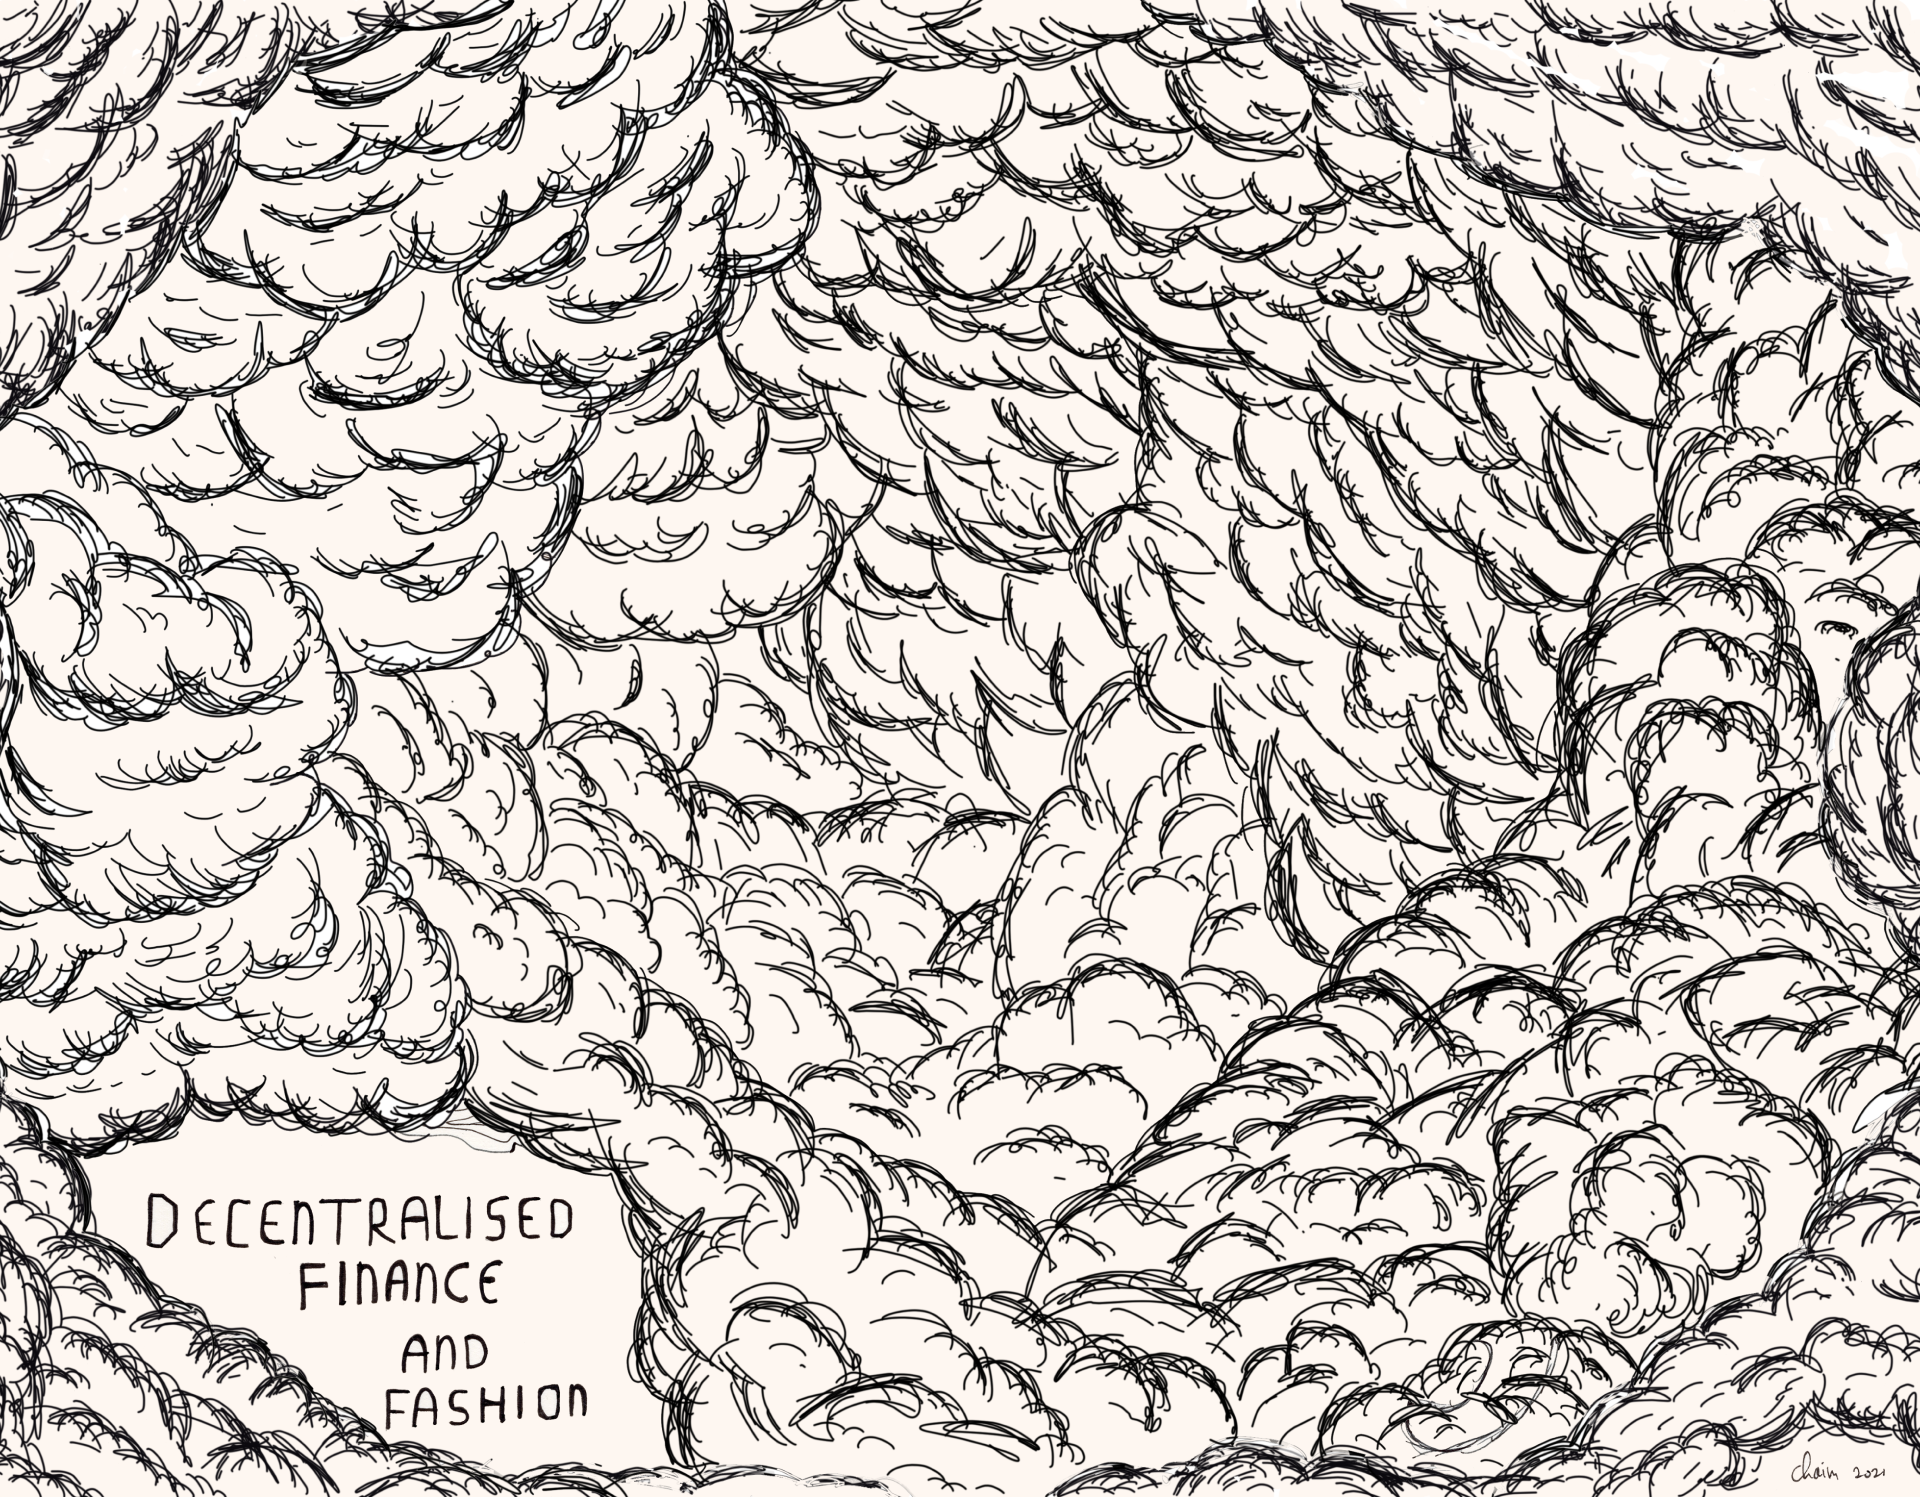 DECENTRALISED
FINANCE
AND
FASHION
Chaim 2021